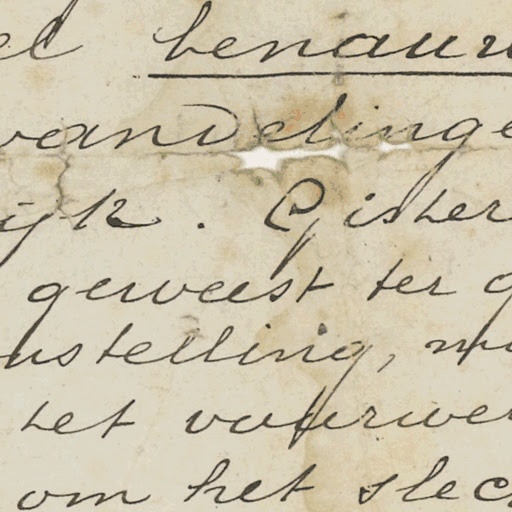 el benau
wandelinge
ijk. Gister
geweest ter
nstelling, m
het vuurwer
om het slec